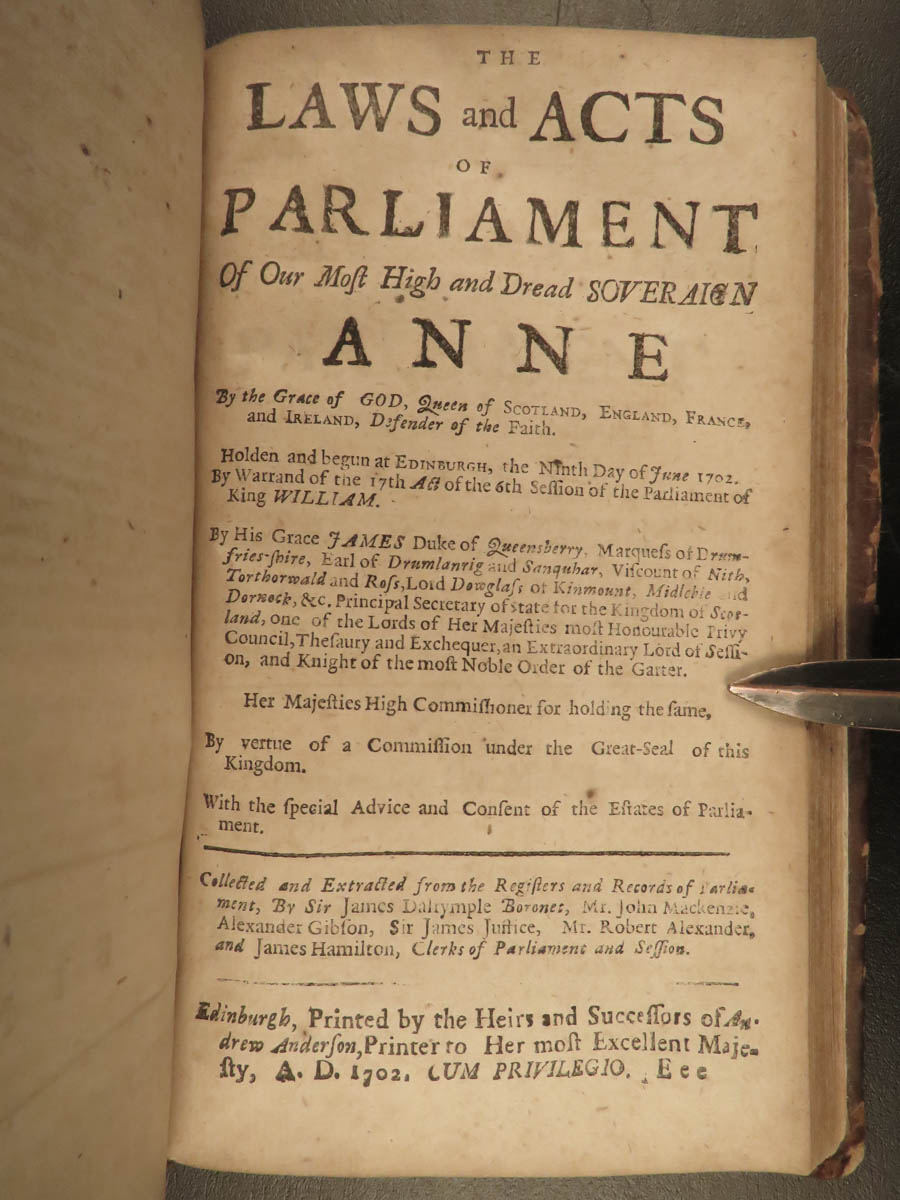 THE
LAWS and ACTS
OF
PARLIAMENT
Of Our Moſt High and Dread SOVERAIGN
ANNE
By the Grace of GOD, Queen of SCOTLAND, ENGLAND, FRANCE,
and IRELAND, Defender of the Faith.
Holden and begun at EDINBURGH, the Ninth Day of June 1702.
By Warrand of the 17th Act of the 6th Seſſion of the Parliament of
King WILLIAM.
By His Grace JAMES Duke of Queensberry, Marqueſs of Drum-
fries-ſhire, Earl of Drumlanrig and Sanquhar, Viſcount of Nith,
Torthorwald and Roſs, Lord Dowglaſs of Kinmount, Midlebie and
Dornock, &c. Principal Secretary of state for the Kingdom of Scot-
land, one of the Lords of Her Majeſties moſt Honourable Privy
Council, Theſaury and Exchequer, an Extraordinary Lord of Seſſi-
on, and Knight of the moſt Noble Order of the Garter.
Her Majeſties High Commiſſioner for holding the ſame,
By vertue of a Commiſſion under the Great-Seal of this
Kingdom.
With the ſpecial Advice and Conſent of the Eſtates of Parlia-
ment.
Collected and Extracted from the Regiſters and Records of Parlia-
ment, By Sir James Dalrymple Boronet, Mr. John Mackenzie,
Alexander Gibſon, Sir James Juſtice, Mr. Robert Alexander,
and James Hamilton, Clerks of Parliament and Seſſion.
Edinburgh, Printed by the Heirs and Succeſſors of An-
drew Anderſon, Printer to Her moſt Excellent Maje-
ſty, A. D. 1702. CUM PRIVILEGIO. Eee